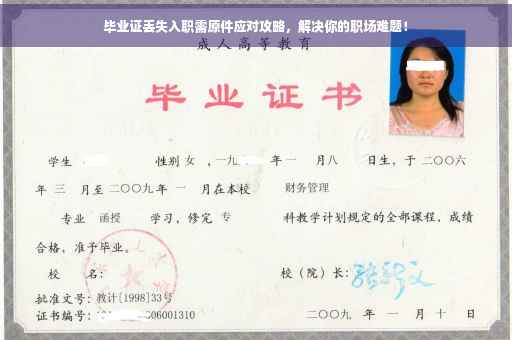 毕业证丢失入职需原件应对攻略，解决你的职场难题！
成人高等教育
毕业证书
学生 性别 女 ，一九 年一 月八 日生，于二〇〇六
年 三 月至二〇〇九年 一 月在本校 财务管理
专业 函授 学习，修完 专 科教学计划规定的全部课程，成绩
合格，准予毕业。
校 名： 校（院）长：
批准文号：教计[1998]33号
证书编号： 06001310 二〇〇九 年 一 月 十 日